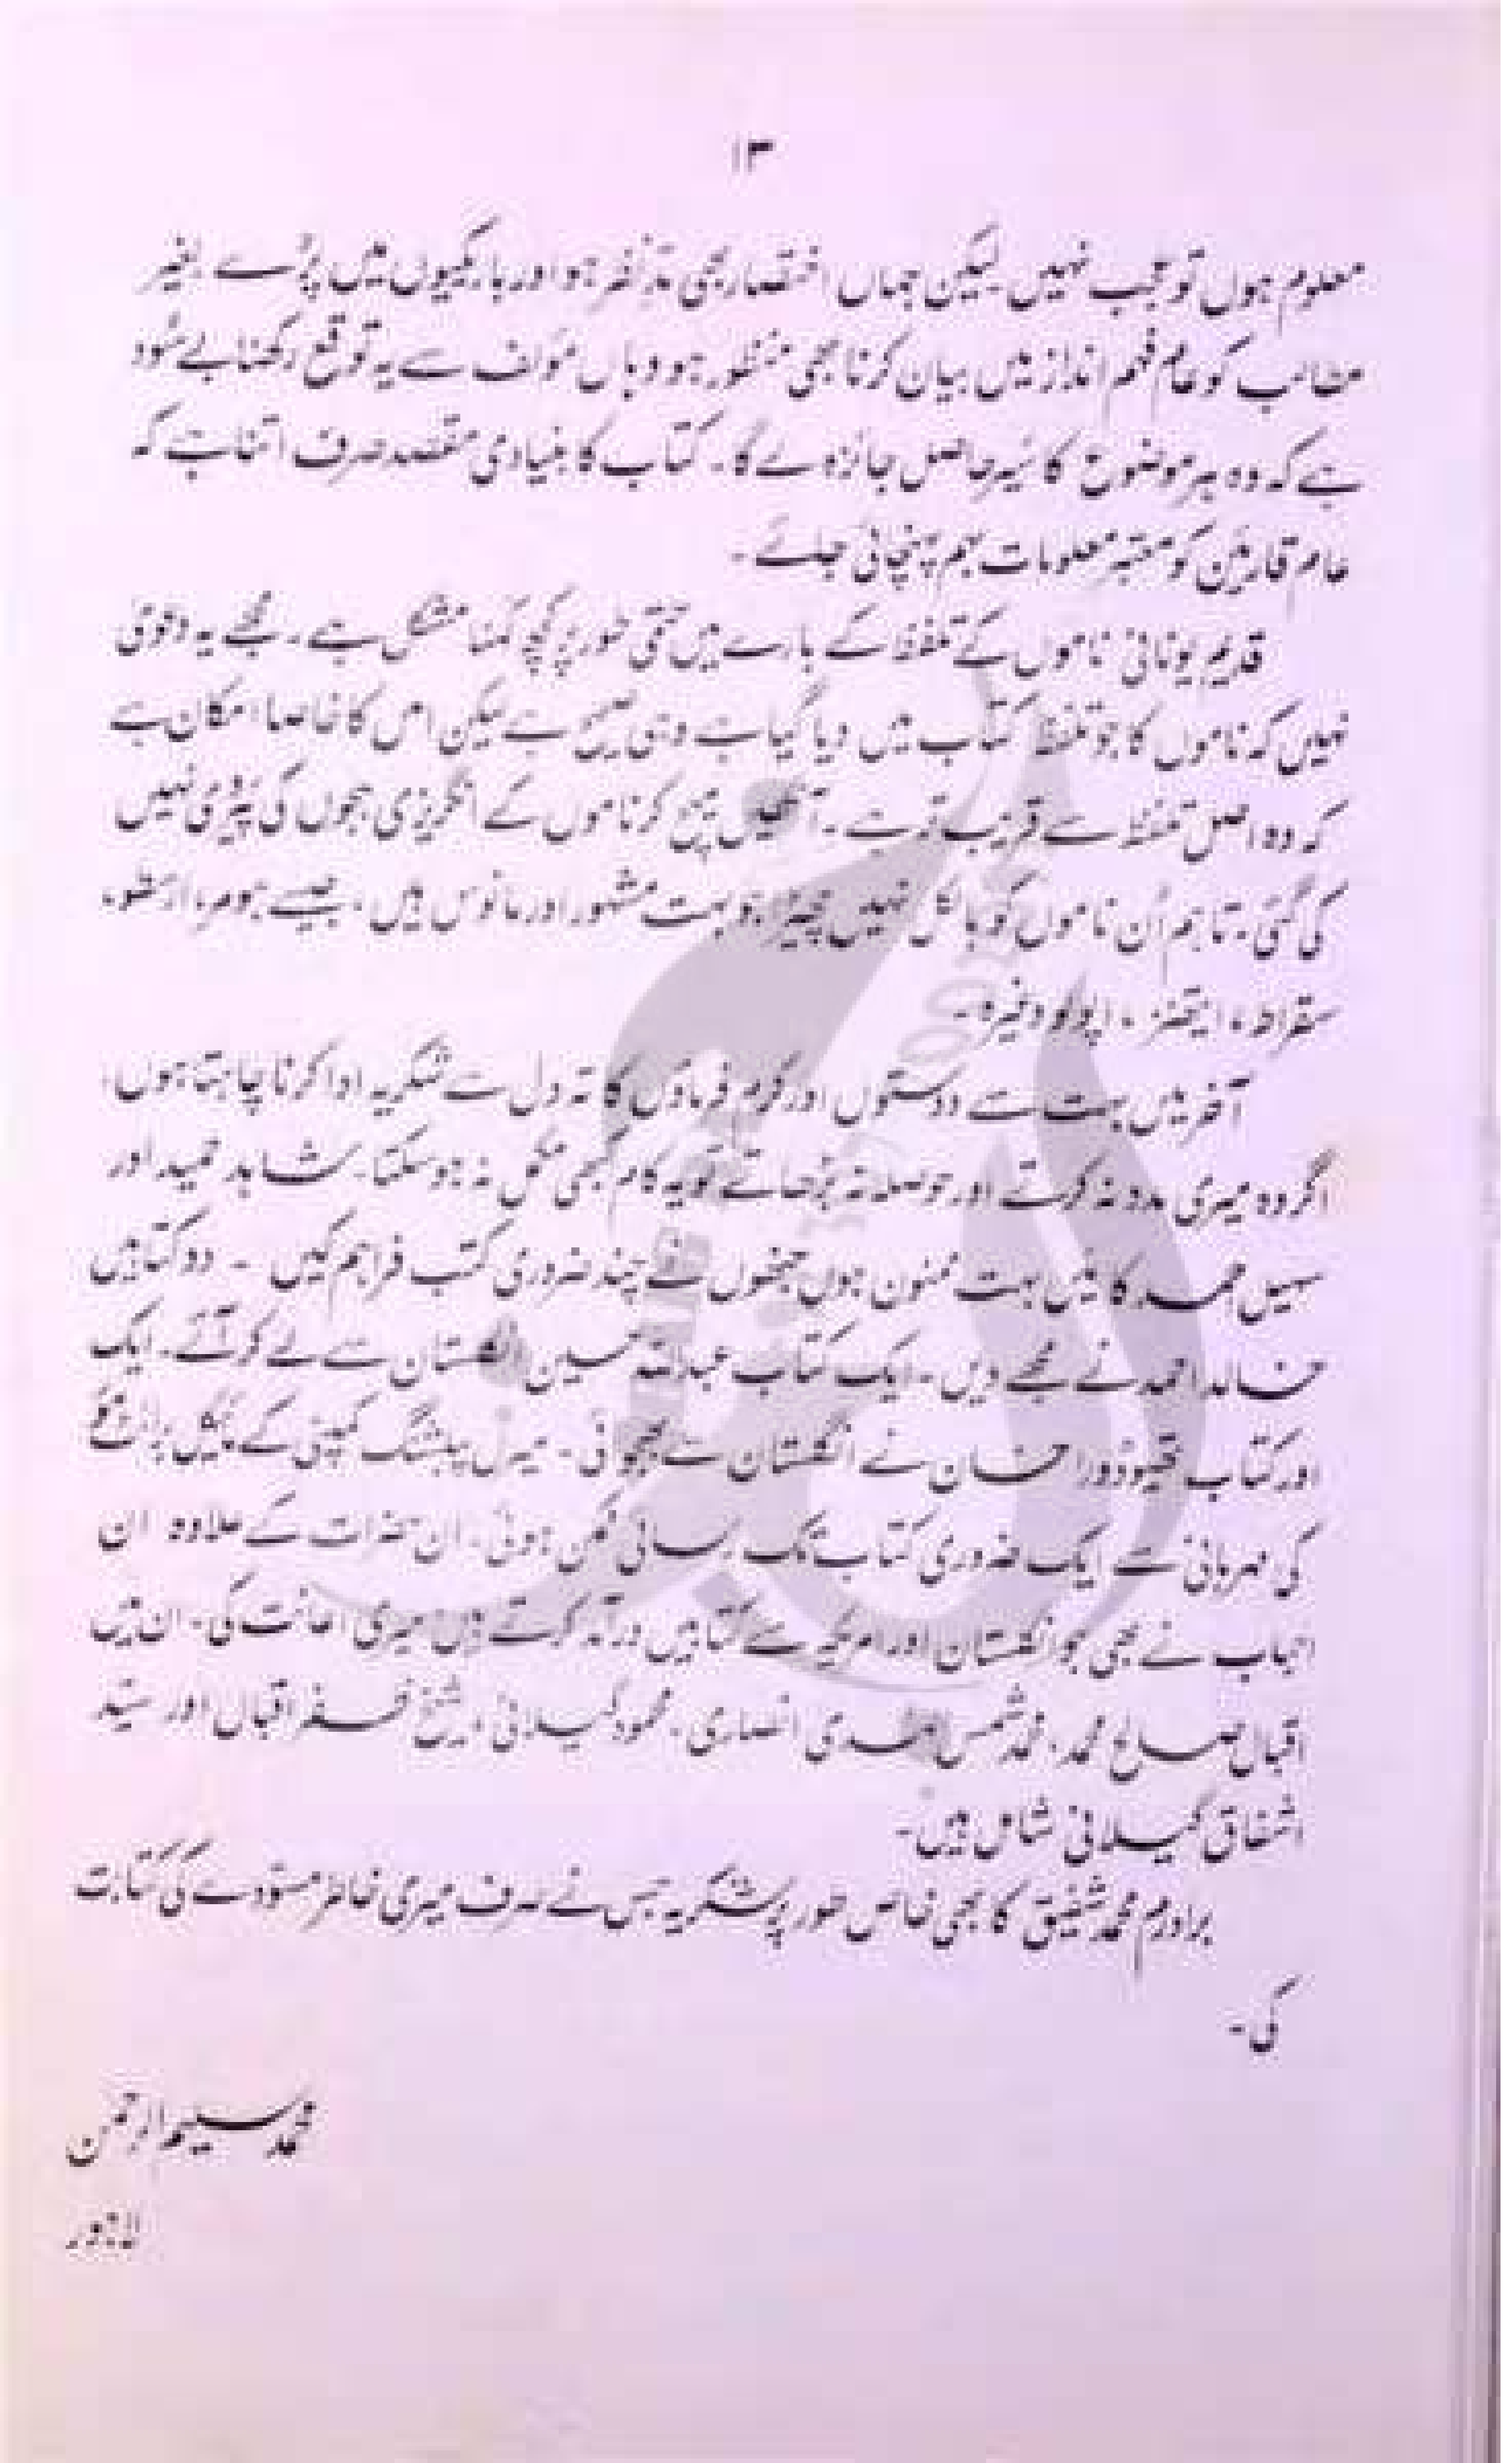 ۱۳
معلوم ہوں تو عجب نہیں لیکن جہاں اختصار بھی مدِنظر ہو اور باریکیوں میں پڑے بغیر
مطالب کو عام فہم انداز میں بیان کرنا بھی منظور ہو وہاں مؤلف سے یہ توقع رکھنا بے سُود
ہے کہ وہ ہر موضوع کا سَیر حاصل جائزہ دے گا۔ کتاب کا بنیادی مقصد صرف اتنا ہے کہ
عام قارئین کو معتبر معلومات بہم پہنچائی جائے۔
قدیم یونانی ناموں کے تلفظ کے بارے میں حتمی طور پر کچھ کہنا مشکل ہے۔ مجھے یہ دعویٰ
نہیں کہ ناموں کا جو تلفظ کتاب میں دیا گیا ہے وہی صحیح ہے لیکن اس کا خاصا امکان ہے
کہ وہ اصل تلفظ سے قریب تر ہے۔ آنکھیں میچ کر ناموں کے انگریزی ہجوں کی پیروی نہیں
کی گئی۔ تاہم اُن ناموں کو بالکل نہیں چھیڑا جو بہت مشہور اور مانوس ہیں، جیسے ہومر، ارسطو،
سقراط، ایتھنز، اپولو وغیرہ۔
آخر میں بہت سے دوستوں اور کرم فرماؤں کا تہ دل سے شکریہ ادا کرنا چاہتا ہوں۔
اگر وہ میری مدد نہ کرتے اور حوصلہ نہ بڑھاتے تو یہ کام کبھی مکمل نہ ہو سکتا۔ شاہد حمید اور
سہیل احمد کا میں بہت ممنون ہوں جنھوں نے چند ضروری کتب فراہم کیں ۔ دو کتابیں
خالد احمد نے مجھے دیں۔ ایک کتاب عبداللہ حسین انگلستان سے لے کر آئے۔ ایک
اور کتاب تھیوڈورا حسان نے انگلستان سے بھجوائی۔ میرل پبلشنگ کمپنی کے
کی مہربانی سے ایک ضروری کتاب تک رسائی ممکن ہوئی۔ ان حضرات کے علاوہ ان
احباب نے بھی جو انگلستان اور امریکہ سے کتابیں درآمد کرتے ہیں میری اعانت کی۔ ان میں
اقبال صالح محمد، محمد شمس الہدی انصاری، محمود گیلانی، شیخ ظفر اقبال اور سید
اشفاق گیلانی شامل ہیں۔
برادرم محمد شفیق کا بھی خاص طور پر شکریہ جس نے صرف میری خاطر مسودے کی کتابت
کی۔
محمد سلیم الرحمٰن
لاہور